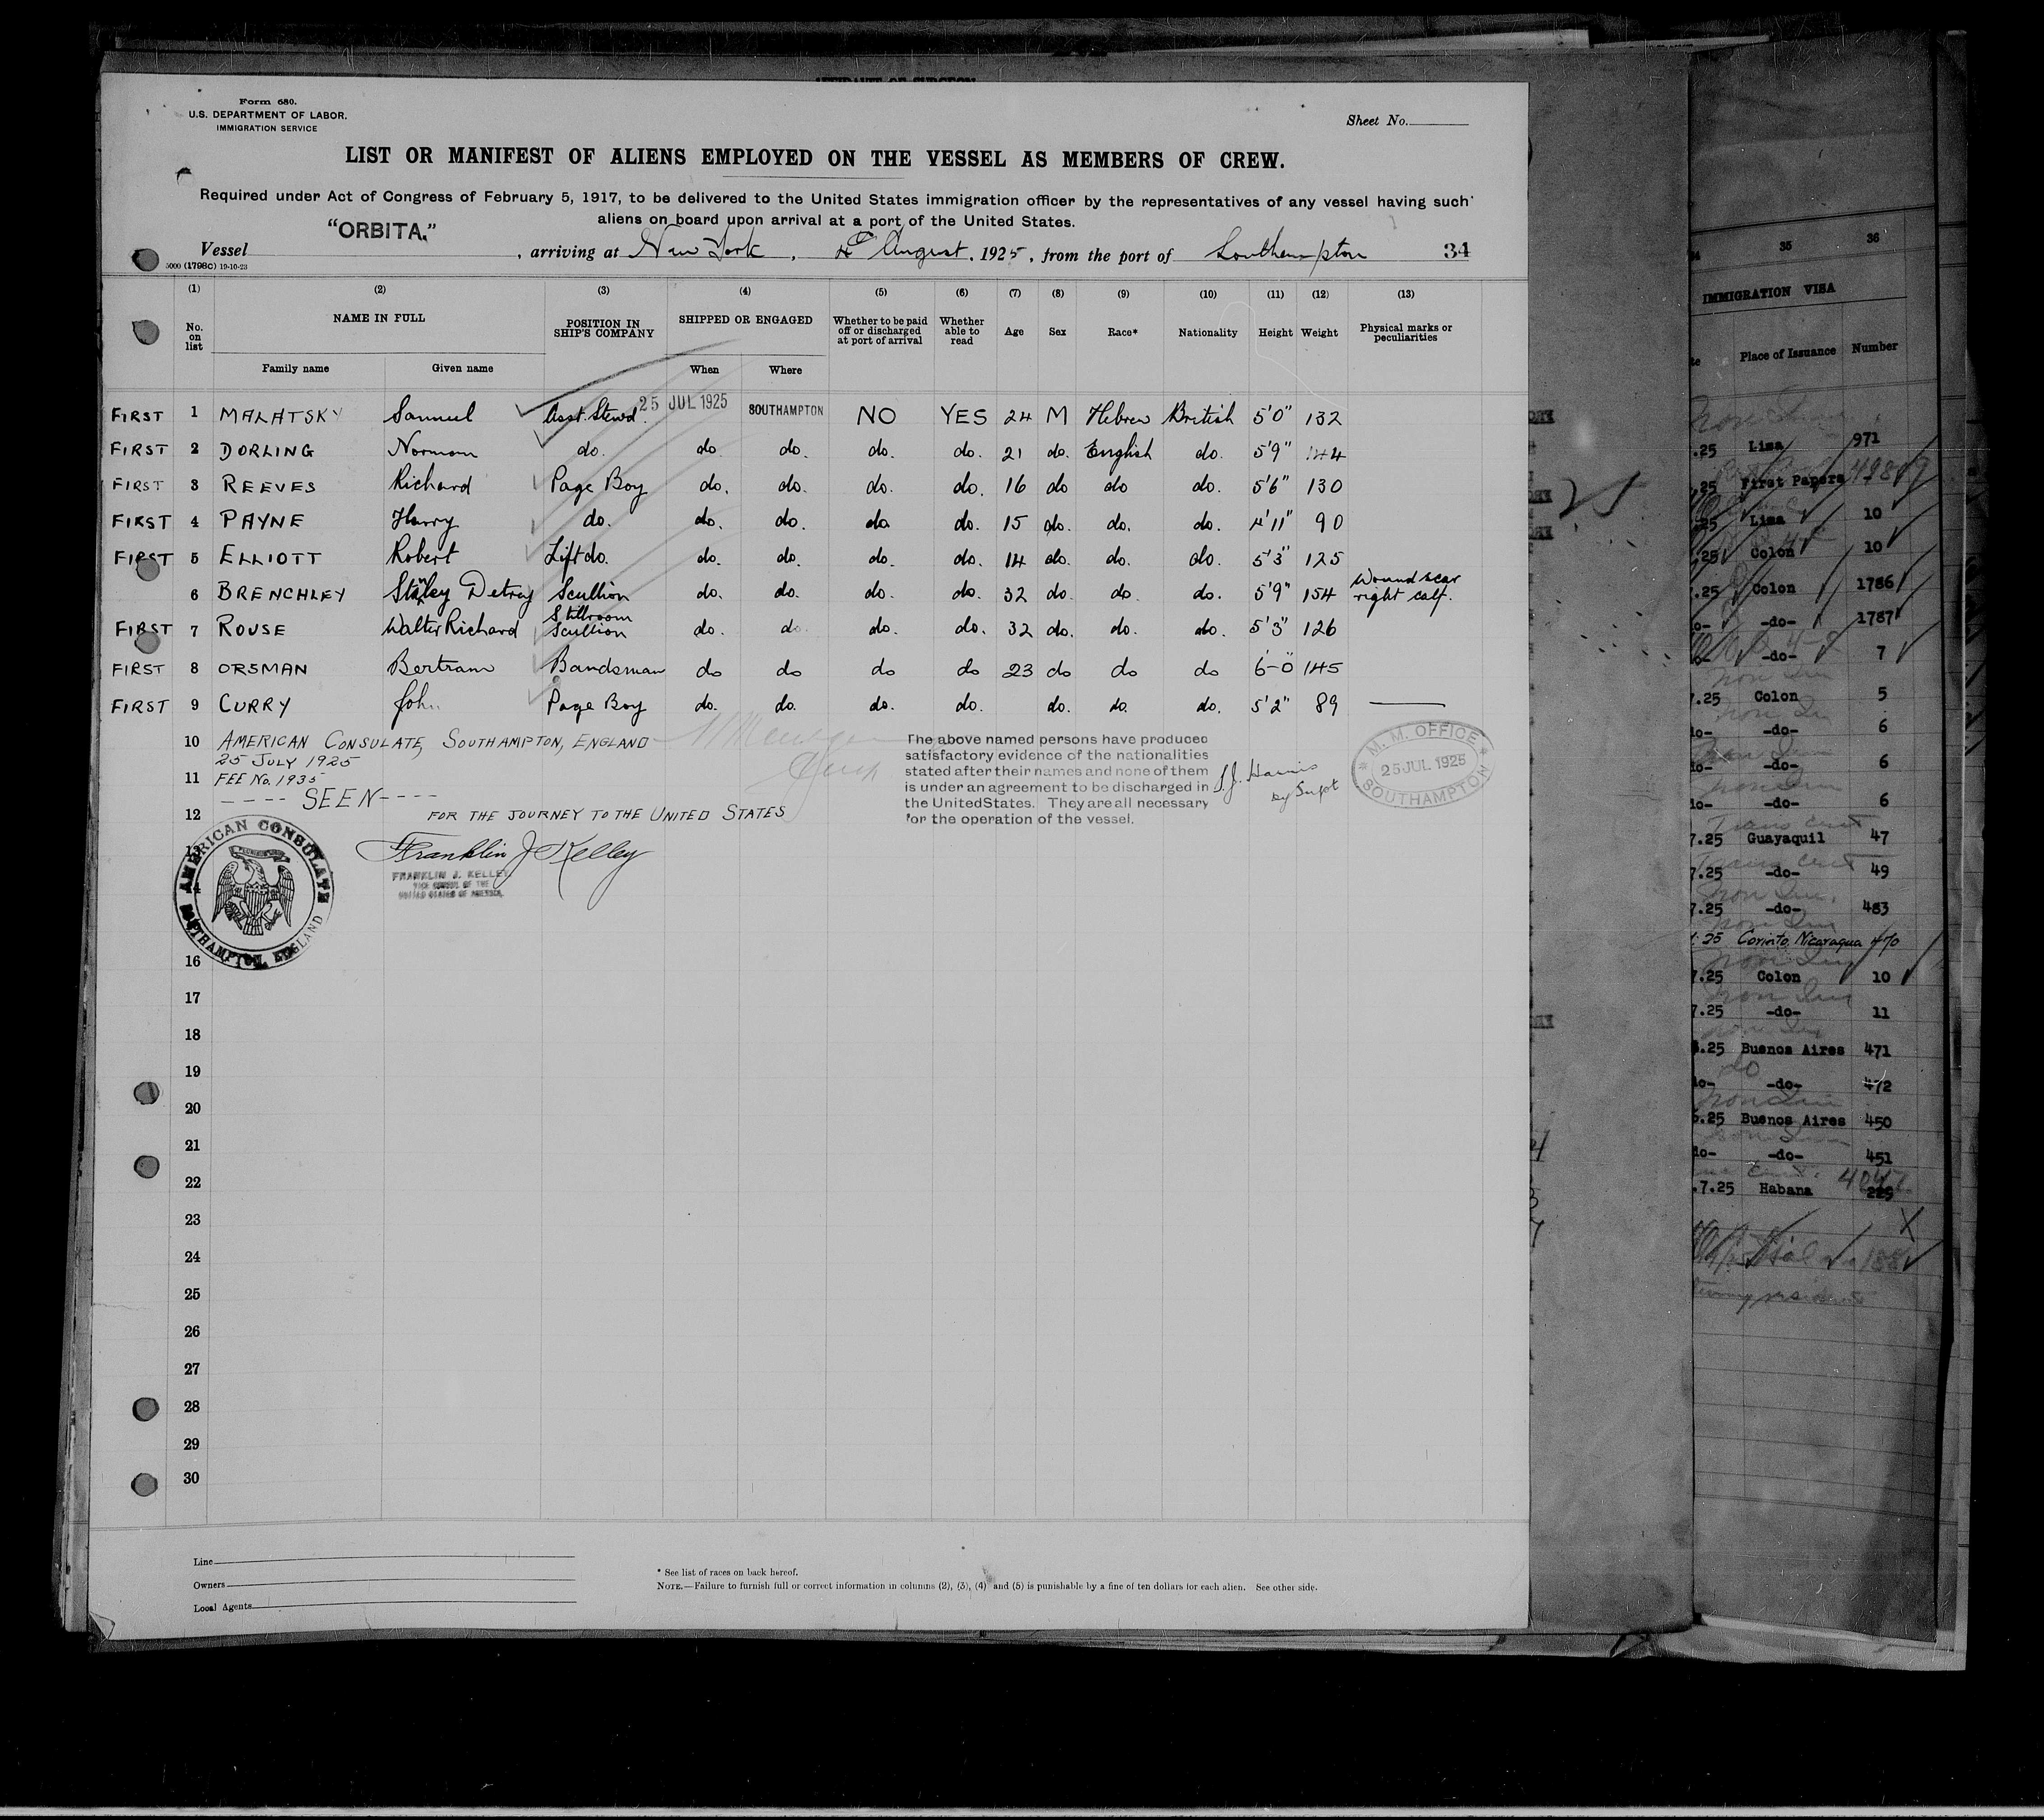 AFFIDAVIT OF SURGEON
Form 680.
U.S. DEPARTMENT OF LABOR.
IMMIGRATION SERVICE
Sheet No.
LIST OR MANIFEST OF ALIENS EMPLOYED ON THE VESSEL AS MEMBERS OF CREW.
Required under Act of Congress of February 5, 1917, to be delivered to the United States immigration officer by the representatives of any vessel having such
aliens on board upon arrival at a port of the United States.
Vessel "ORBITA." , arriving at New York , 4th August , 1925 , from the port of Southampton 34
5000 (1798C) 19-10-23
(1) (2) (3) (4) (5) (6) (7) (8) (9) (10) (11) (12) (13)
No. on list NAME IN FULL POSITION IN SHIP'S COMPANY SHIPPED OR ENGAGED Whether to be paid off or discharged at port of arrival Whether able to read Age Sex Race* Nationality Height Weight Physical marks or peculiarities
Family name Given name When Where
FIRST 1 MALATSKY Samuel Asst. Stewd. 25 JUL 1925 SOUTHAMPTON NO YES 24 M Hebrew British 5'0" 132
FIRST 2 DORLING Norman do. do. do. do. do. 21 do. English do. 5'9" 144
FIRST 3 REEVES Richard Page Boy do. do. do. do. 16 do do do. 5'6" 130
FIRST 4 PAYNE Harry do. do. do. do do. 15 do. do. do. 4'11" 90
FIRST 5 ELLIOTT Robert Lift do. do. do. do. do. 14 do. do. do. 5'3" 125
6 BRENCHLEY Stanley Detroy Scullion do. do. do. do. 32 do. do. do. 5'9" 154 Wound scar right calf.
FIRST 7 ROUSE Walter Richard Stillroom Scullion do. do. do. do. 32 do. do. do. 5'3" 126
FIRST 8 ORSMAN Bertram Bandsman do do do do 23 do do do 6-0" 145
FIRST 9 CURRY John Page Boy do. do. do. do. do. do. do. 5'2" 89
10 AMERICAN CONSULATE, SOUTHAMPTON, ENGLAND
25 JULY 1925
11 FEE No. 1935
---- SEEN ----
12 FOR THE JOURNEY TO THE UNITED STATES
The above named persons have produced
satisfactory evidence of the nationalities
stated after their names and none of them
is under an agreement to be discharged in
the United States. They are all necessary
for the operation of the vessel.
M. M. OFFICE
25 JUL 1925
SOUTHAMPTON
AMERICAN CONSULATE
SOUTHAMPTON, ENGLAND
Franklin J Kelley
FRANKLIN J. KELLEY
VICE CONSUL OF THE
UNITED STATES OF AMERICA.
16
17
18
19
20
21
22
23
24
25
26
27
28
29
30
Line
Owners
Local Agents
* See list of races on back hereof.
NOTE.—Failure to furnish full or correct information in columns (2), (3), (4) and (5) is punishable by a fine of ten dollars for each alien. See other side.
35 36
IMMIGRATION VISA
Place of Issuance Number
.25 Lima 971
.25 First Papers
.25 Lima 10
.25 Colon 10
.25 Colon 1786
-do- 1787
-do- 7
7.25 Colon 5
-do- 6
-do- 6
-do- 6
7.25 Guayaquil 47
7.25 -do- 49
7.25 -do- 483
25 Corinto, Nicaragua 470
7.25 Colon 10
7.25 -do- 11
.25 Buenos Aires 471
-do- 472
.25 Buenos Aires 450
-do- 451
.7.25 Habana